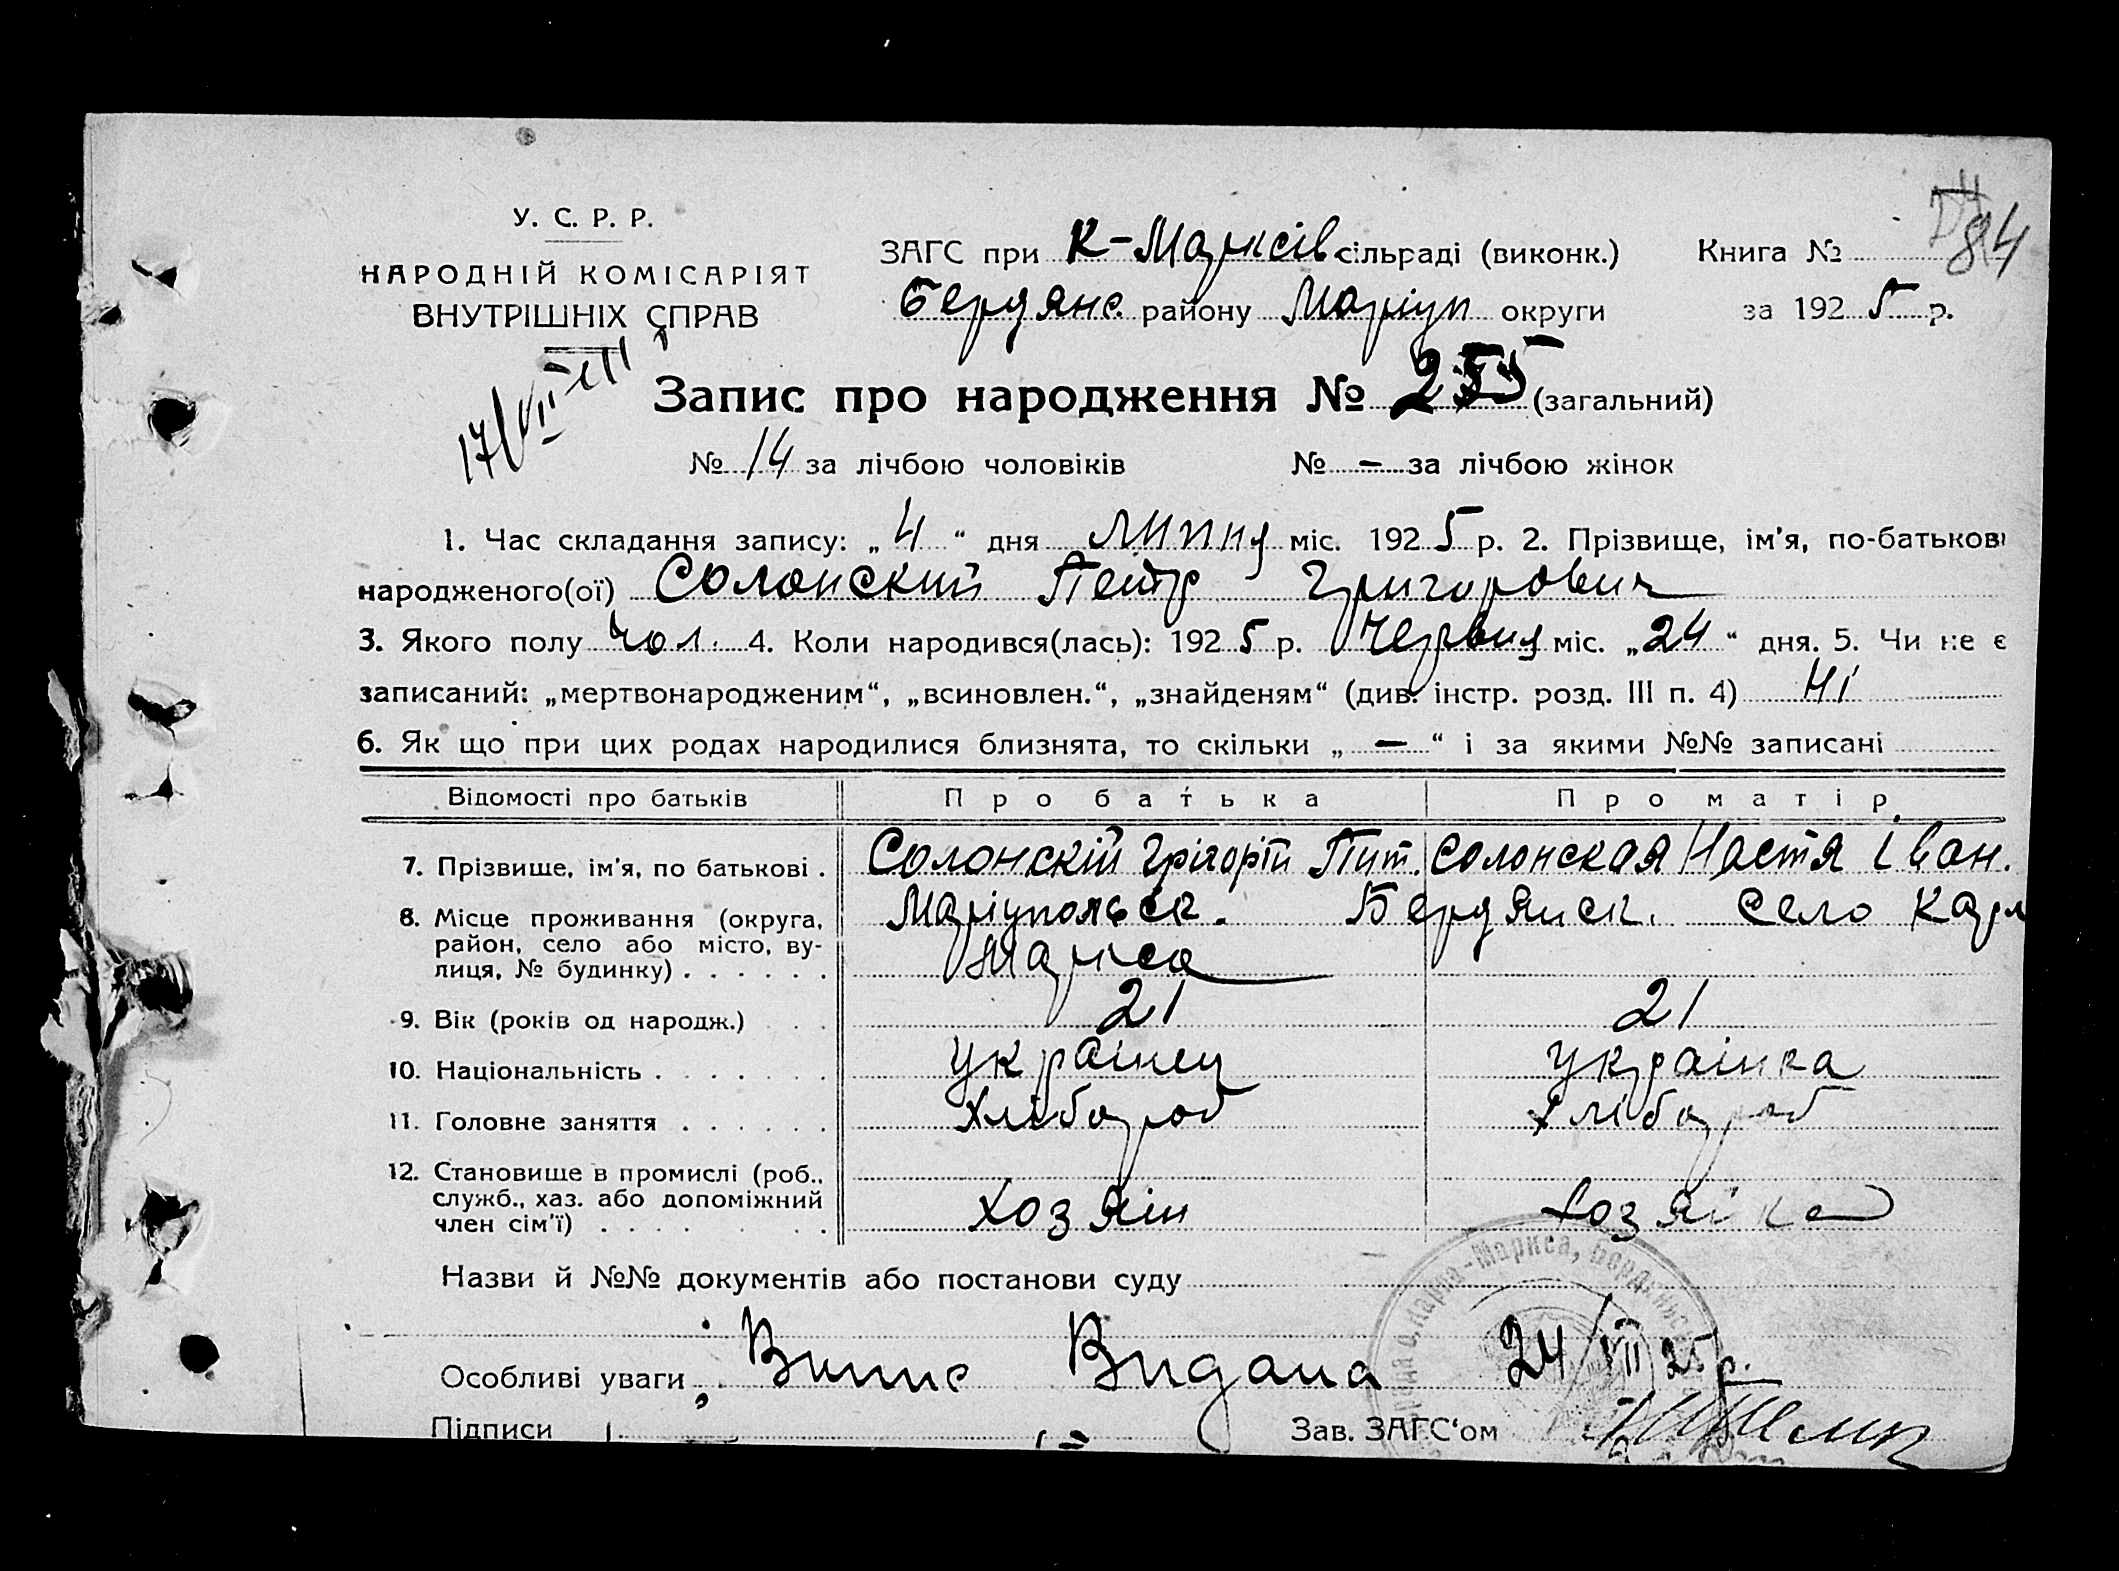 У. С. Р. Р.
НАРОДНІЙ КОМІСАРІЯТ
ВНУТРІШНІХ СПРАВ
ЗАГС при К-Марксів сільраді (виконк.) Книга № 84
Бердянс. району Маріуп округи за 1925 р.
17/VII
Запис про народження № 255 (загальний)
№ 14 за лічбою чоловіків № — за лічбою жінок
1. Час складання запису: „4“ дня липня міс. 1925 р. 2. Прізвище, ім'я, по-батькові
народженого(ої) Солонский Петр Григорович
3. Якого полу чол. 4. Коли народився(лась): 1925 р. Червня міс. „24“ дня. 5. Чи не є
записаний: „мертвонародженим“, „всиновлен.“, „знайденям“ (див. інстр. розд. III п. 4) Ні
6. Як що при цих родах народилися близнята, то скільки „—“ і за якими №№ записані
Відомості про батьків Про батька Про матір
7. Прізвище, ім'я, по батькові . Солонскій Грігорій Пит. Солонская Настя Іван.
8. Місце проживання (округа, Маріупольск. Бердянск. село Карл
район, село або місто, ву- Маркса
лиця, № будинку) . . . . . .
9. Вік (років од народж.) . . 21 21
10. Національність . . . . . . . украінец украінка
11. Головне заняття . . . . . . Хлібороб Хлібороб
12. Становище в промислі (роб.,
служб., хаз. або допоміжний Хозяін Хозяйка
член сім'ї) . . . . . .
Назви й №№ документів або постанови суду
Особливі уваги Випис Видана 24/VII 25 р.
Підписи Зав. ЗАГС'ом